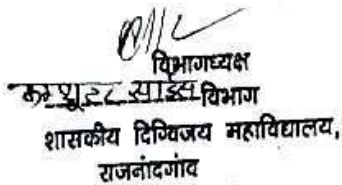 विभागध्यक्ष
कम्प्यूटर साइंस विभाग
शासकीय दिग्विजय महाविद्यालय,
राजनांदगांव